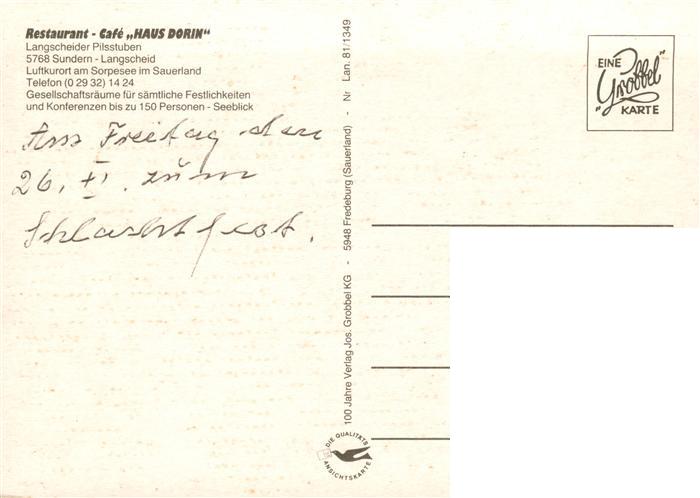 Restaurant - Café „HAUS DORIN“
Langscheider Pilsstuben
5768 Sundern - Langscheid
Luftkurort am Sorpesee im Sauerland
Telefon (0 29 32) 14 24
Gesellschaftsräume für sämtliche Festlichkeiten
und Konferenzen bis zu 150 Personen - Seeblick
Am Freitag den
26. XI. zum
Schlachtfest.
100 Jahre Verlag Jos. Grobbel KG - 5948 Fredeburg (Sauerland) - Nr Lan. 81/1349
DIE QUALITÄTS
ANSICHTSKARTE
EINE
„Grobbel“
KARTE